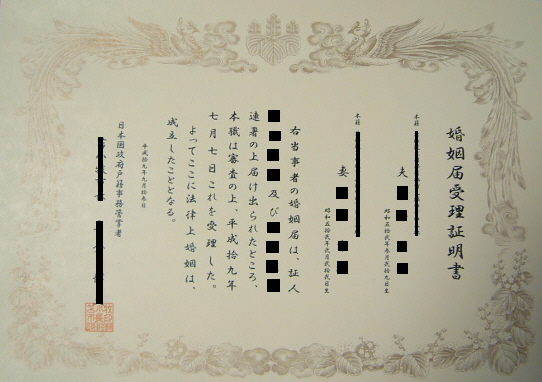 婚姻届受理証明書
本籍
夫
昭和五拾弐年参月弐拾九日生
本籍
妻
昭和五拾弐年弐月弐拾弐日生
右当事者の婚姻届は、証人
及び
連署の上届け出られたところ、
本職は審査の上、平成拾九年
七月七日これを受理した。
よってここに法律上婚姻は、
成立したこととなる。
平成拾九年九月拾壱日
日本国政府戸籍事務管掌者